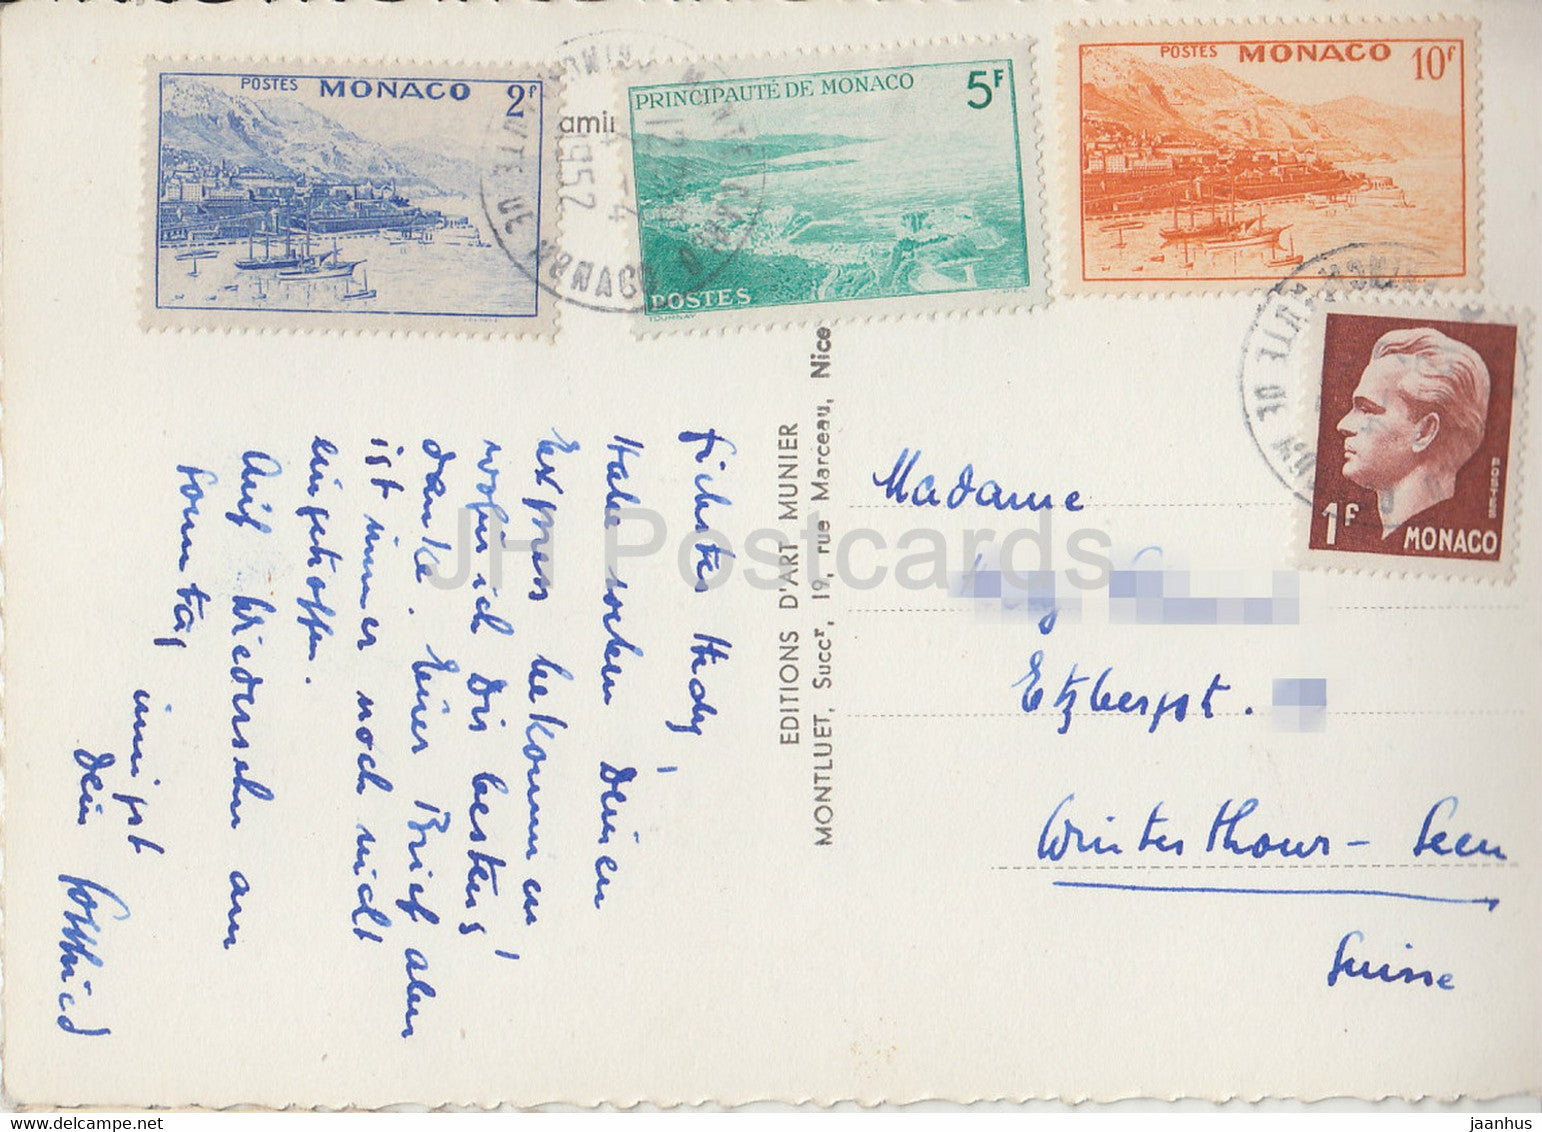 POSTES MONACO 2F
PRINCIPAUTÉ DE MONACO 5F
POSTES
TOURNAY
POSTES MONACO 10F
1F MONACO
amil
1952
EDITIONS D'ART MUNIER
MONTLUET, Succr, 19, rue Marceau, Nice
Hedy,
Habe soeben Deinen
Express bekommen,
wofür ich Dir bestens
danke. Einer Brief aber
ist immer noch nicht
eingetroffen.
Auf Wiedersehn am
Sonntag
innigst
Dein Gottfried
Madame
Etzbergst.
Winterthour - Seen
Suisse
JH Postcards
www.delcampe.net
jaanhus